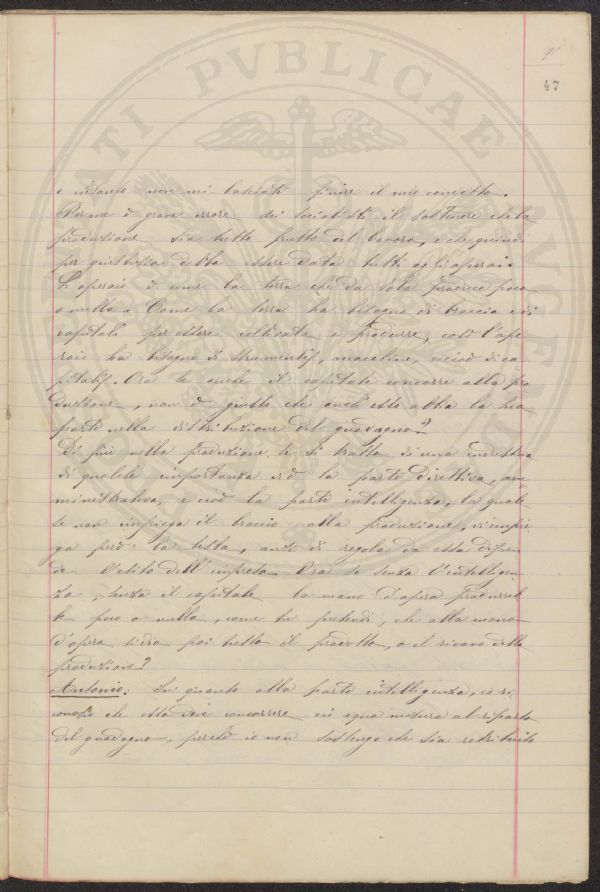 47
e intanto non mi lasciate finire il mio concetto.
Per me è grave errore dei socialisti il sostenere che la
produzione sia tutto frutto del lavoro, e che quindi
per giustizia debba essere data tutti agli operai.
L'operaio è come la terra che da sola produce poco
o nulla. Come la terra ha bisogna di braccia e di
capitali per essere coltivata e produrre, così l'ope
raio ha bisogno di strumenti, macchine, ecciò di ca
pitali. Ora se anche il capitale concorre alla pro
duzione, non è giusto che anch'esso abbia la sua
parte nella distribuzione del guadagno?
Di più nella produzione, se si tratta di una industria
di qualche importanza vi è la parte direttiva, am
ministrativa, e cioè la parte intelligenza, la quale
se non impiega il braccio alla produzione, v'impie
ga però la testa, anzi di regola da essa dipen
de l'esito dell'impresa. Ora se senza l'intelligen
za, senza il capitale la mano d'opera produrreb
be poco o nulla, come tu pretendi, che alla mano
d'opera si dia poi tutto il prodotto, o il ricavo della
produzione?
Antonio: In quanto alla parte intelligenza, io ri
conosco che essa deve concorrere in equa misura al riparto
del guadagno, perciò io non sostengo che sia retribuito
PUBLICAE